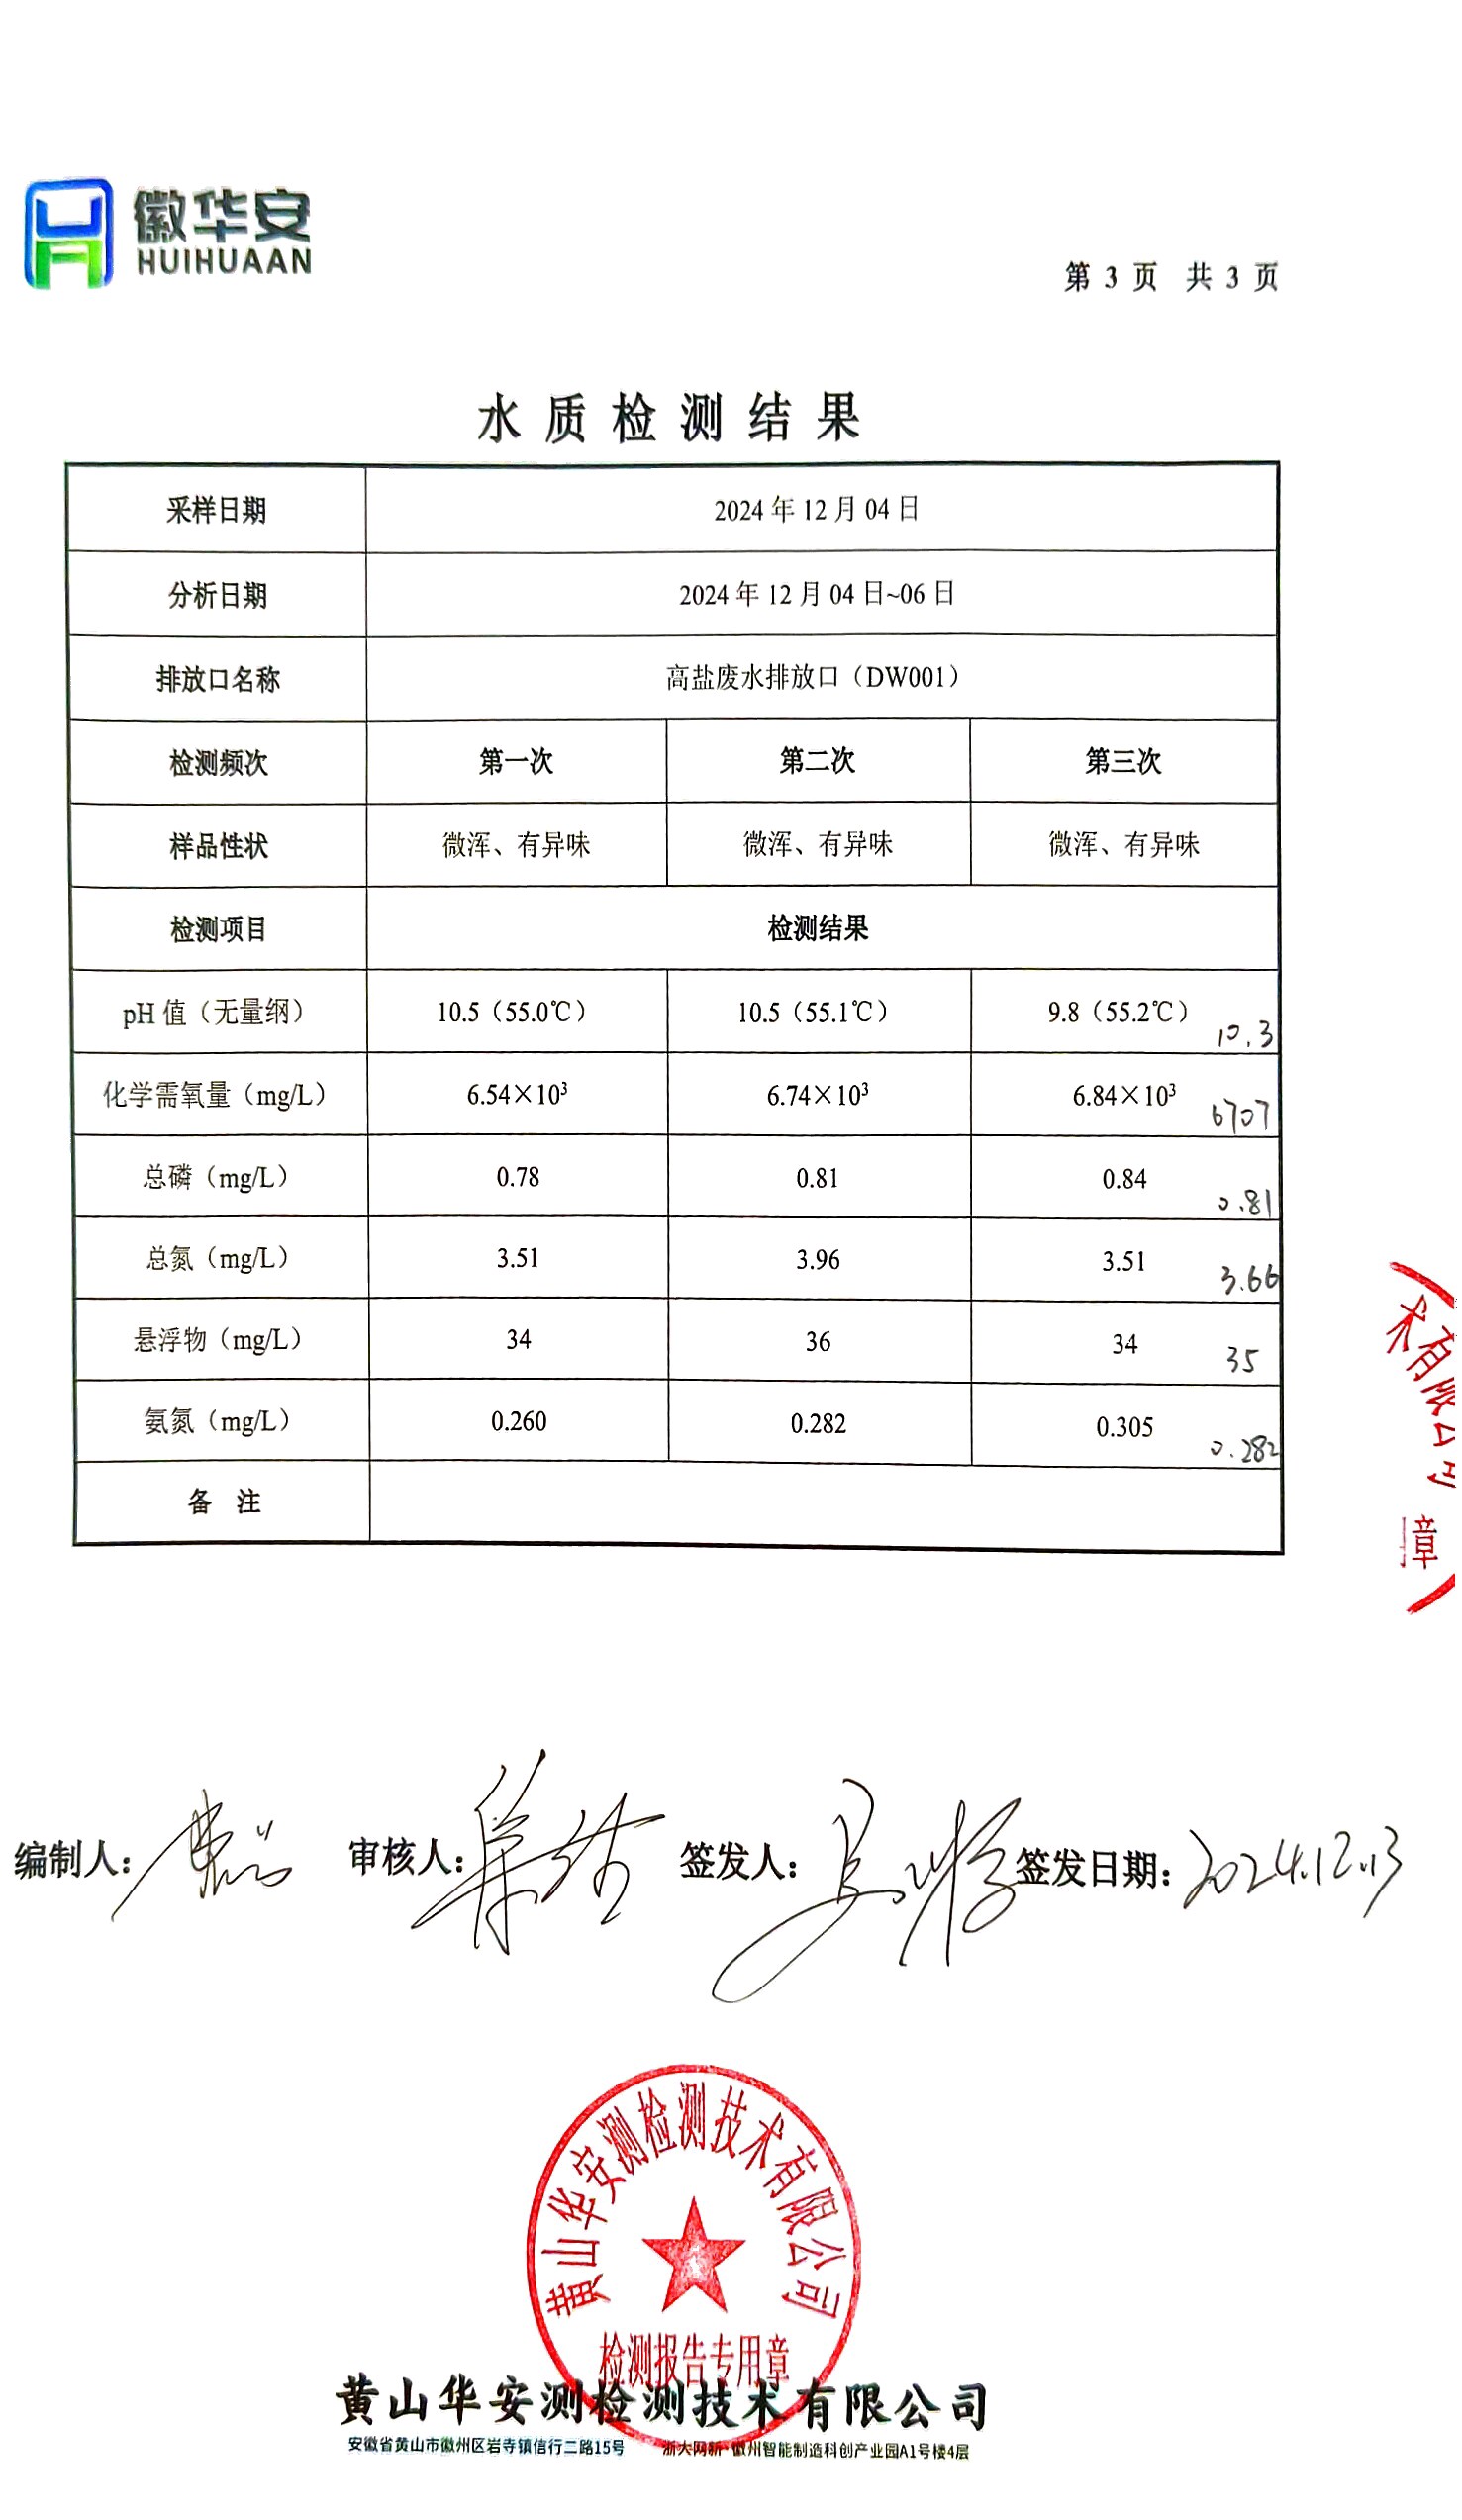 徽华安
HUIHUAAN
第 3 页 共 3 页
水质检测结果
采样日期 2024 年 12 月 04 日
分析日期 2024 年 12 月 04 日~06 日
排放口名称 高盐废水排放口（DW001）
检测频次 第一次 第二次 第三次
样品性状 微浑、有异味 微浑、有异味 微浑、有异味
检测项目 检测结果
pH 值（无量纲） 10.5（55.0℃） 10.5（55.1℃） 9.8（55.2℃） 10.3
化学需氧量（mg/L） 6.54×10³ 6.74×10³ 6.84×10³ 6707
总磷（mg/L） 0.78 0.81 0.84 0.81
总氮（mg/L） 3.51 3.96 3.51 3.66
悬浮物（mg/L） 34 36 34 35
氨氮（mg/L） 0.260 0.282 0.305 0.282
备 注
术有限公司
章
编制人： 审核人： 签发人： 签发日期：2024.12.13
黄山华安测检测技术有限公司
检测报告专用章
黄山华安测检测技术有限公司
安徽省黄山市徽州区岩寺镇信行二路15号 浙大网新·徽州智能制造科创产业园A1号楼4层